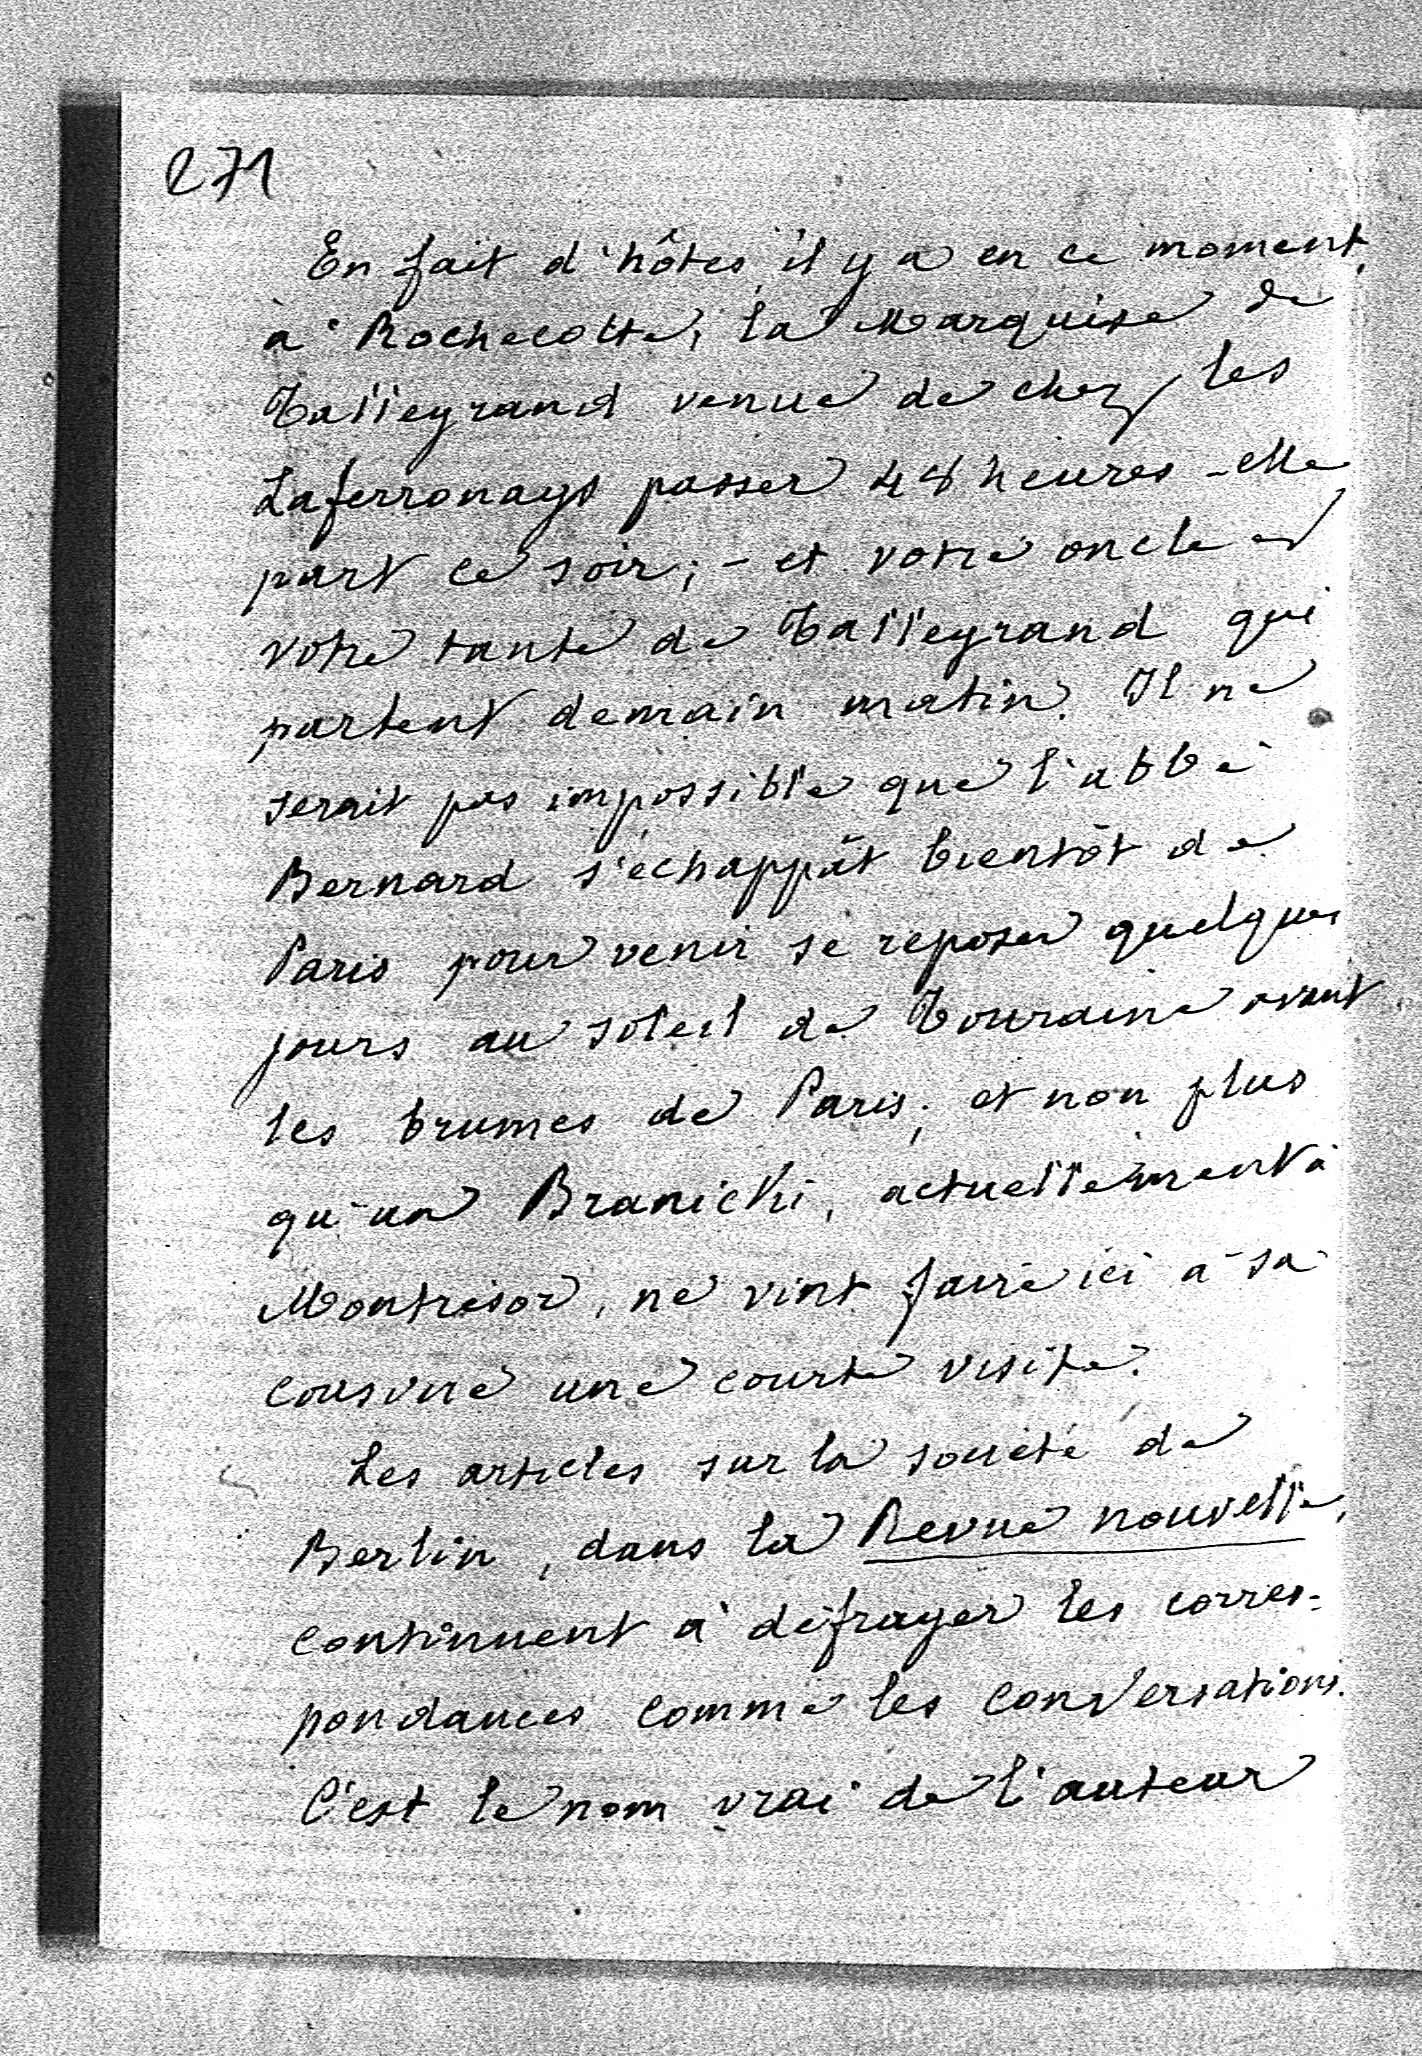 271
En fait d'hôtes, il y a en ce moment,
à Rochecotte, la Marquise de
Talleyrand venue de chez les
Laferronays passer 48 heures - elle
part ce soir; - et votre oncle et
votre tante de Talleyrand qui
partent demain matin. Il ne
serait pas impossible que l'abbé
Bernard s'échappât bientôt de
Paris pour venir se reposer quelques
jours au soleil de Touraine avant
les brumes de Paris; et non plus
qu'un Branicki, actuellement à
Montrésor, ne vint faire ici à sa
cousine une courte visite.
Les articles sur la société de
Berlin, dans la Revue nouvelle,
continuent à défrayer les corres-
pondances comme les conversations.
C'est le nom vrai de l'auteur